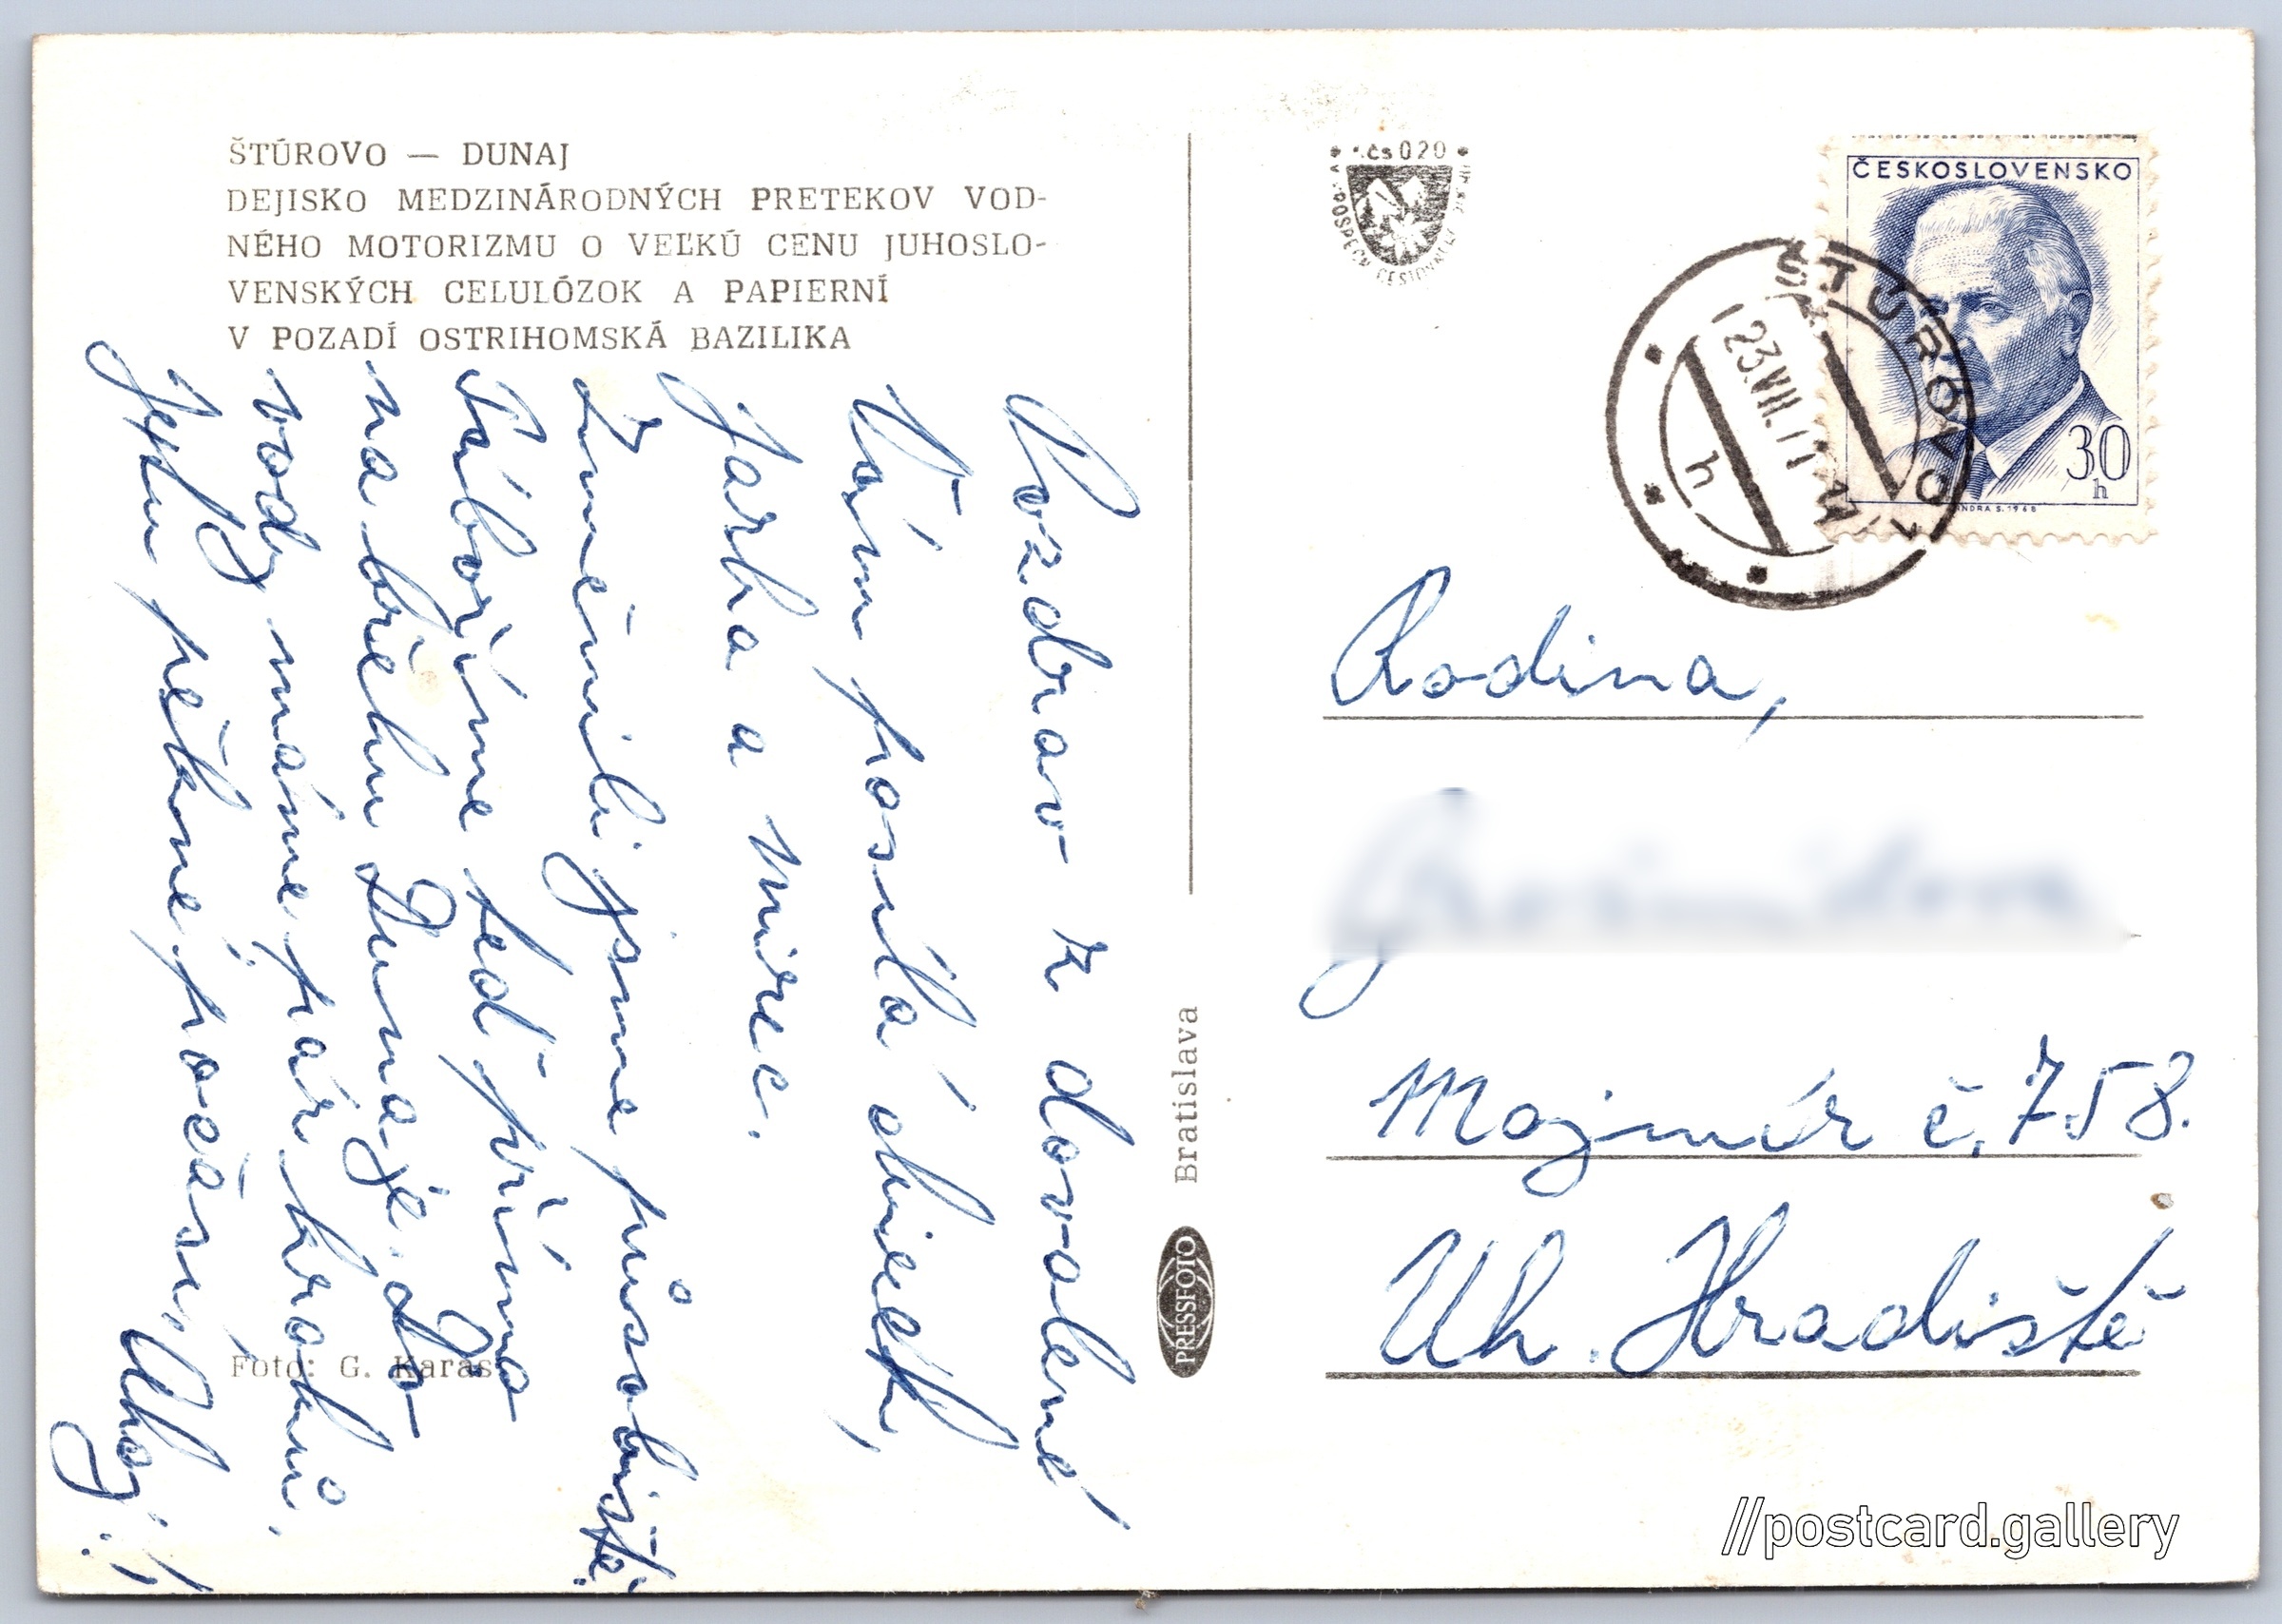 ŠTÚROVO — DUNAJ
DEJISKO MEDZINÁRODNÝCH PRETEKOV VOD-
NÉHO MOTORIZMU O VEĽKÚ CENU JUHOSLO-
VENSKÝCH CELULÓZOK A PAPIERNÍ
V POZADÍ OSTRIHOMSKÁ BAZILIKA
Pozdrav z dovolené
Vám posílá
Jarka a Mirec.
Změnili jsme působiště.
Táboříme teď přímo
na břehu Dunaje. Do
vody máme pár kroků.
Je tu pěkné počasí. Ahoj!!
Foto: G. Karas
Bratislava
PRESSFOTO
čs 020
ČESKOSLOVENSKO
30
h
ŠTÚROVO
23.VII.71
h
Rodina,
Mojmír č. 758.
Uh. Hradiště
//postcard.gallery